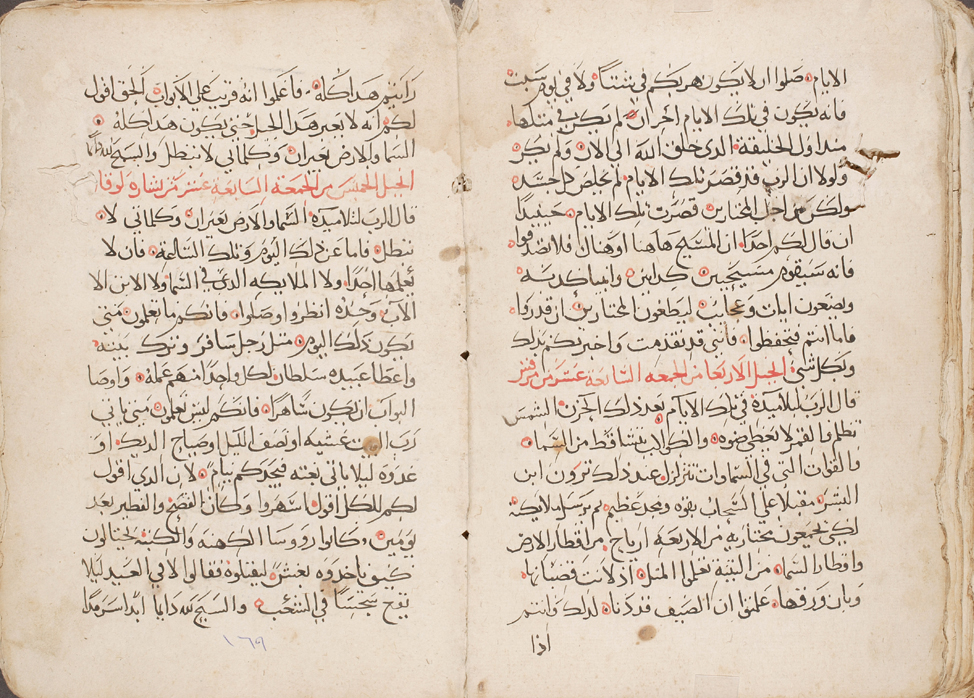 الايام صلوا ان لا يكون هربكم في شتتًا ولا في يوم سبت
فانه يكون في تلك الايام احزان لم يكن مثلها
منذ اول الخليقة الذى خلق الله الى الان ولم يكن
ولولا ان الرب قد قصر تلك الايام لم يخلص جسد
ولكن من اجل المختارين قصرت تلك الايام حينيدًا
ان قال لكم احدًا ان المسيح هاهنا او هناك فلا تصدقوا
فانه سيقوم مسيحيين كدابين وانبيا كدبه
ويصنعون ايات وعجايب ليطغون المختارين ان قدروا
فاما انتم فتحفظوا فانني قد تقدمت واخبرتكم بذلك
وبكل شي انجيل الاربعا من الجمعه السابعة عشر من مرقس
قال الرب لتلاميذه في تلك الايام بعد ذلك الحزن الشمس
تظلم والقمر لا يعطي ضوه والكواكب تتساقط من السما
والقوات التي في السماوات تتزلزل عند ذلك ترون ابن
البشر مقبلا علي السحاب بقوه ومجد عظيم ثم يرسل ملايكته
لكي يجمعون مختاريه من الاربعة ارياح من اقطار الارض
واقطار السما من التينه تعلموا المثل اذ لانت قضبانها
وبان ورقها علمتوا ان الصيف قد دنا لذلك وانتم
اذا
رايتم هدا كله فاعلموا انه قريب علي الابواب الحق اقول
لكم انه لا يعبر هدا الجيل حتي يكون هدا كله
السما والارض يعبران وكلماتي لا تبطل والسبح لله دايمًا
انجيل الخميس من الجمعه السابعة عشر من بشارة لوقا
قال الرب لتلاميذه السما والارض يعبران وكلماتي لا
تبطل فاما عن ذلك اليوم وتلك الساعة فان لا
يعلمها احدًا ولا الملايكه الدى في السما ولا الابن الا
الاب وحده انظروا وصلوا فانكم ما تعلمون متي
يكون ذلك اليوم مثل رجل سافر وترك بيته
واعطا عبيده سلطان لكل واحدًا منهم عمله واوصا
البواب ان يكون ساهرًا فانكم ليس تعلمون متي ياتي
رب البيت عشيه او نصف الليل او صياح الديك او
غدوة ليلا ياتي بغته فيجدكم نيام لان الدى اقول
لكم للكل اقول اسهروا وكان الفصح والفطير بعد
يومين وكانوا روسا الكهنه والكتبه يحتالون
كيف ياخدوه بغش ليقتلوه فقالوا لا في العيد ليلا
يوج سجسًا في الشعب والسبح لله دايما ابدا سرمدا
١٦٩